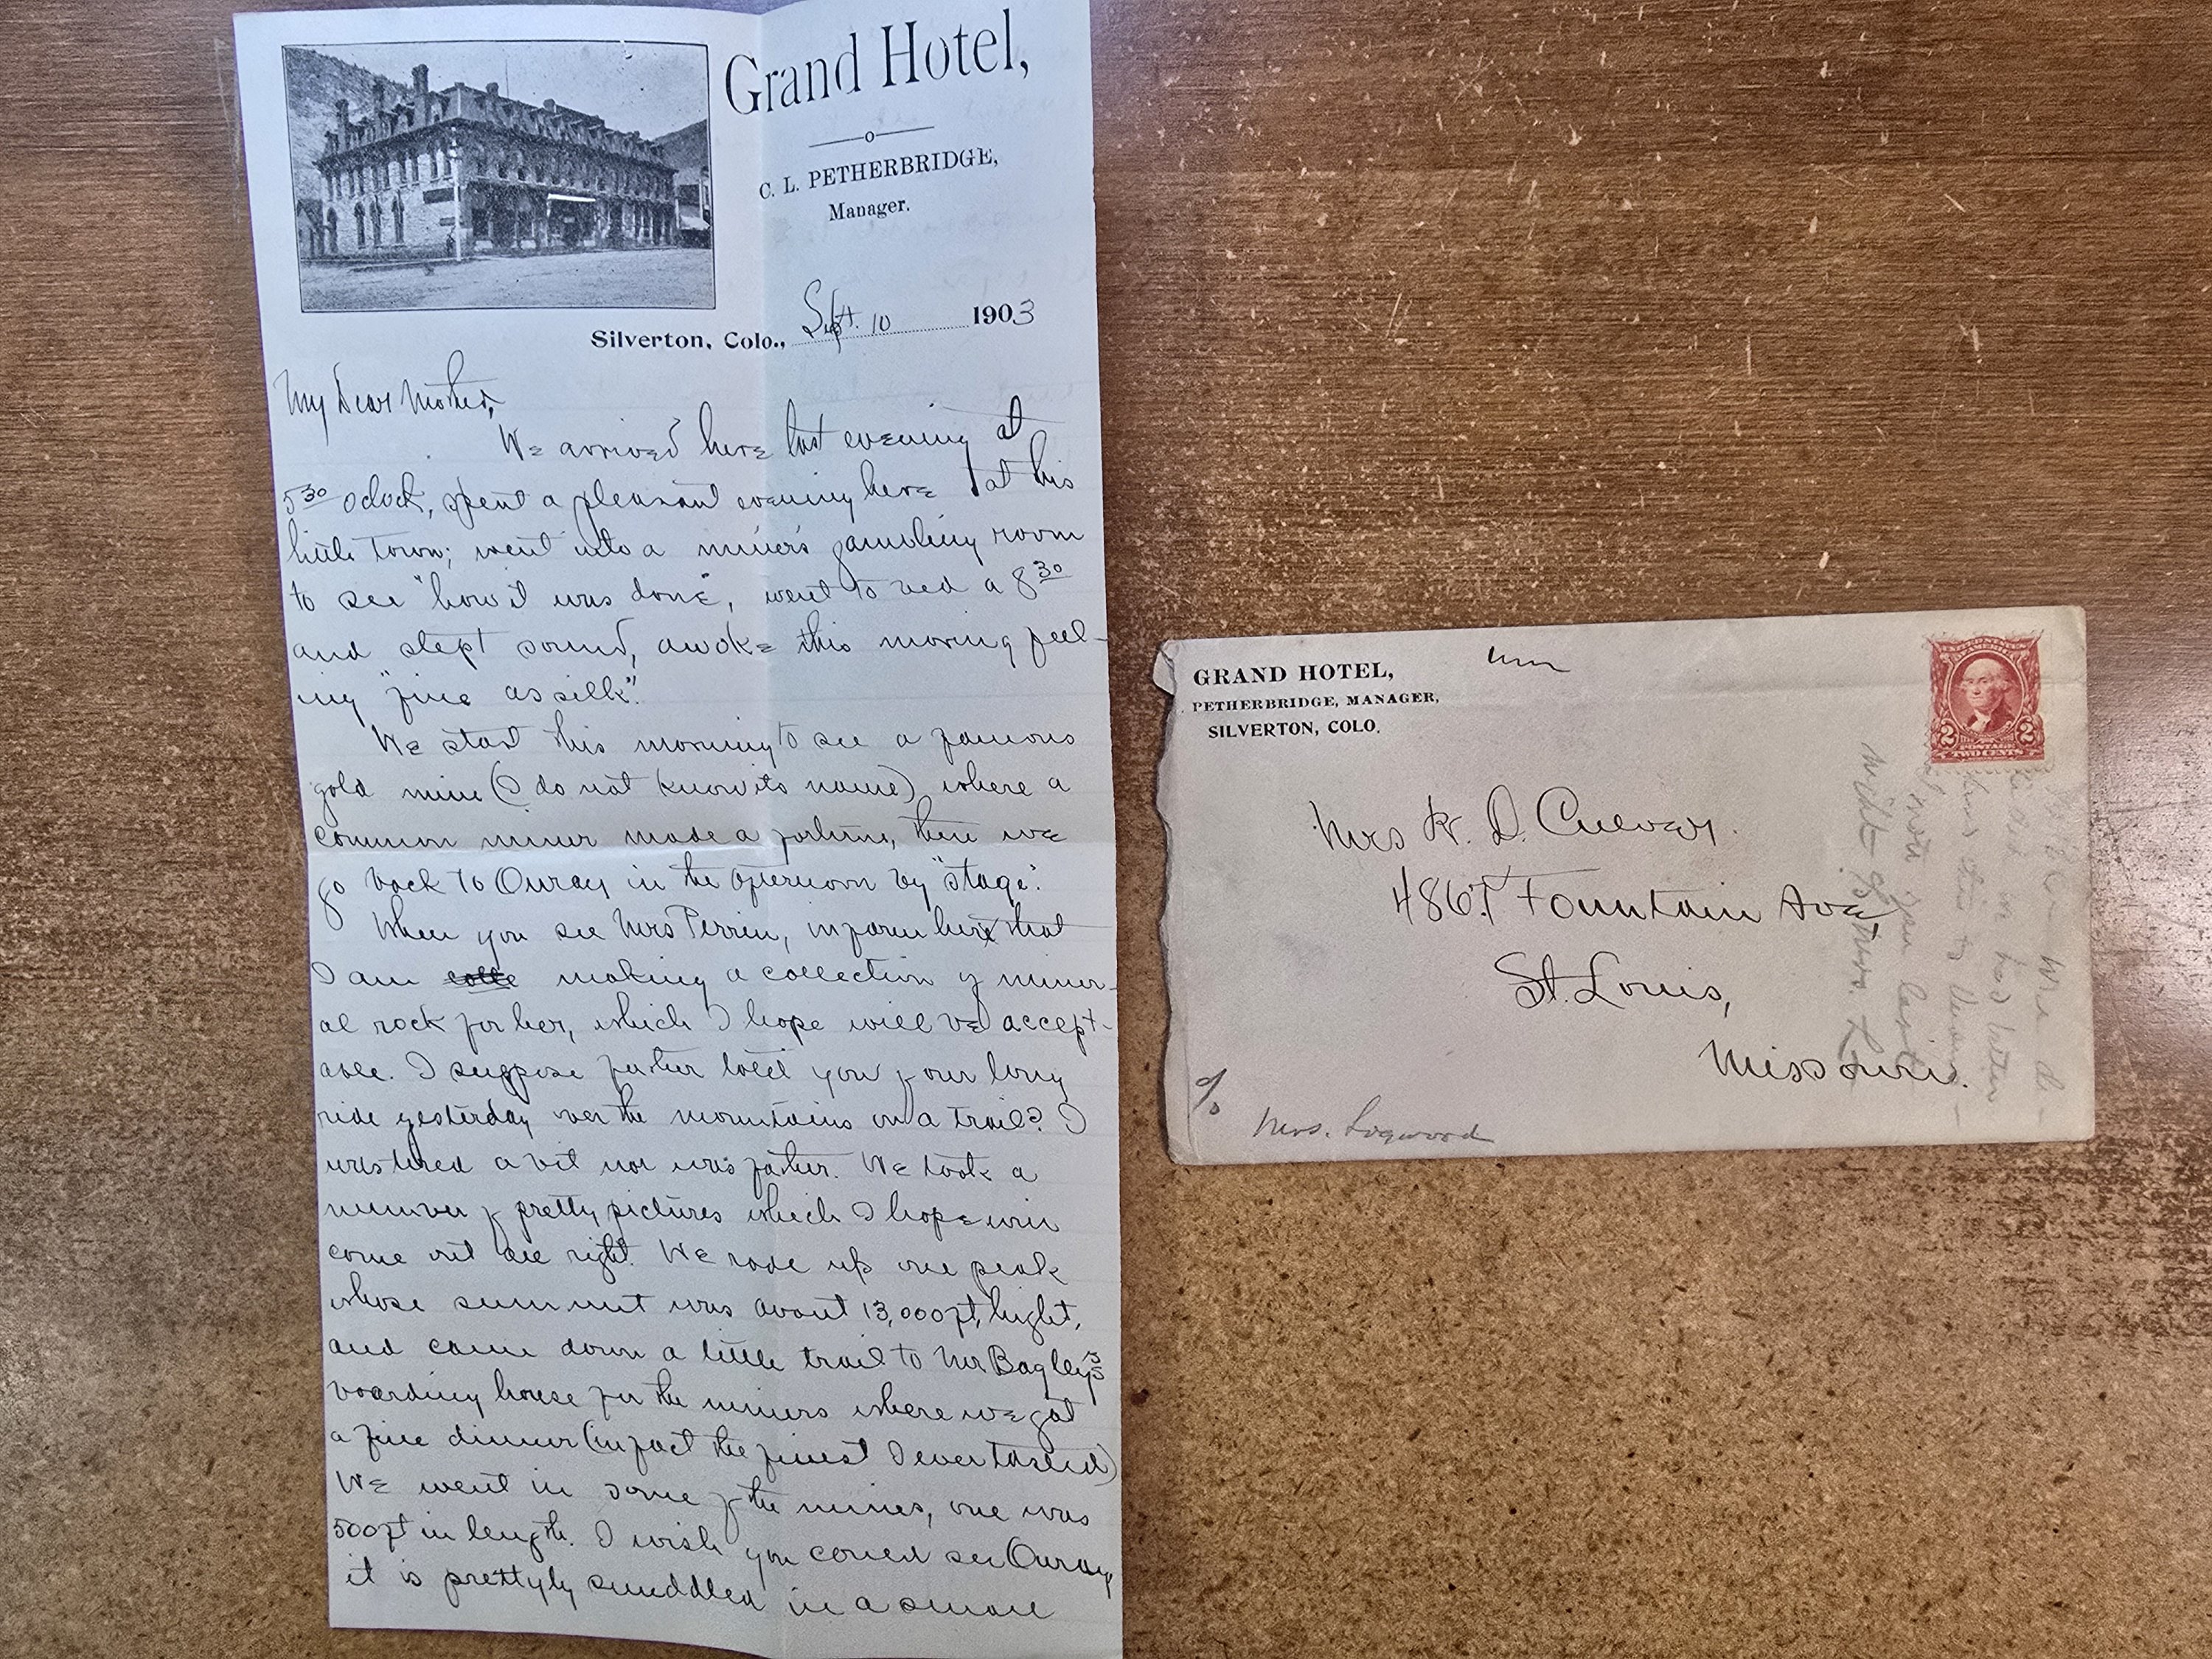 Grand Hotel,
C. L. PETHERBRIDGE,
Manager.
Silverton, Colo., Sept. 10 1903
My Dear Mother,
We arrived here last evening at
5³⁰ oclock, spent a pleasant evening here at this
little town; went into a miner's gambling room
to see "how it was done", went to bed a 8³⁰
and slept sound, awoke this morning feel-
ing "fine as silk".
We start this morning to see a famous
gold mine (I do not know its name) where a
common miner made a fortune, then we
go back to Ouray in the afternoon by "stage".
When you see Mrs Perrin, inform her that
I am making a collection of miner-
al rock for her, which I hope will be accept-
able. I suppose father told you of our long
ride yesterday over the mountains on a trail? I
was tired a bit not was father. We took a
number of pretty pictures which I hope will
come out all right. We rode up one peak
whose summit was about 13,000 ft, hight,
and came down a little trail to Mr Bagley's
boarding house for the miners where we got
a fine dinner (in fact the finest I ever tasted)
We went in some of the mines, one was
500 ft in length. I wish you could see Ouray
it is prettyly snuddled in a small
GRAND HOTEL,
PETHERBRIDGE, MANAGER,
SILVERTON, COLO.
2 2
POSTAGE
TWO CENTS
Mrs R. D. Culver.
4867 Fountain Ave
St. Louis,
Missouri.
%
Mrs. Logwood